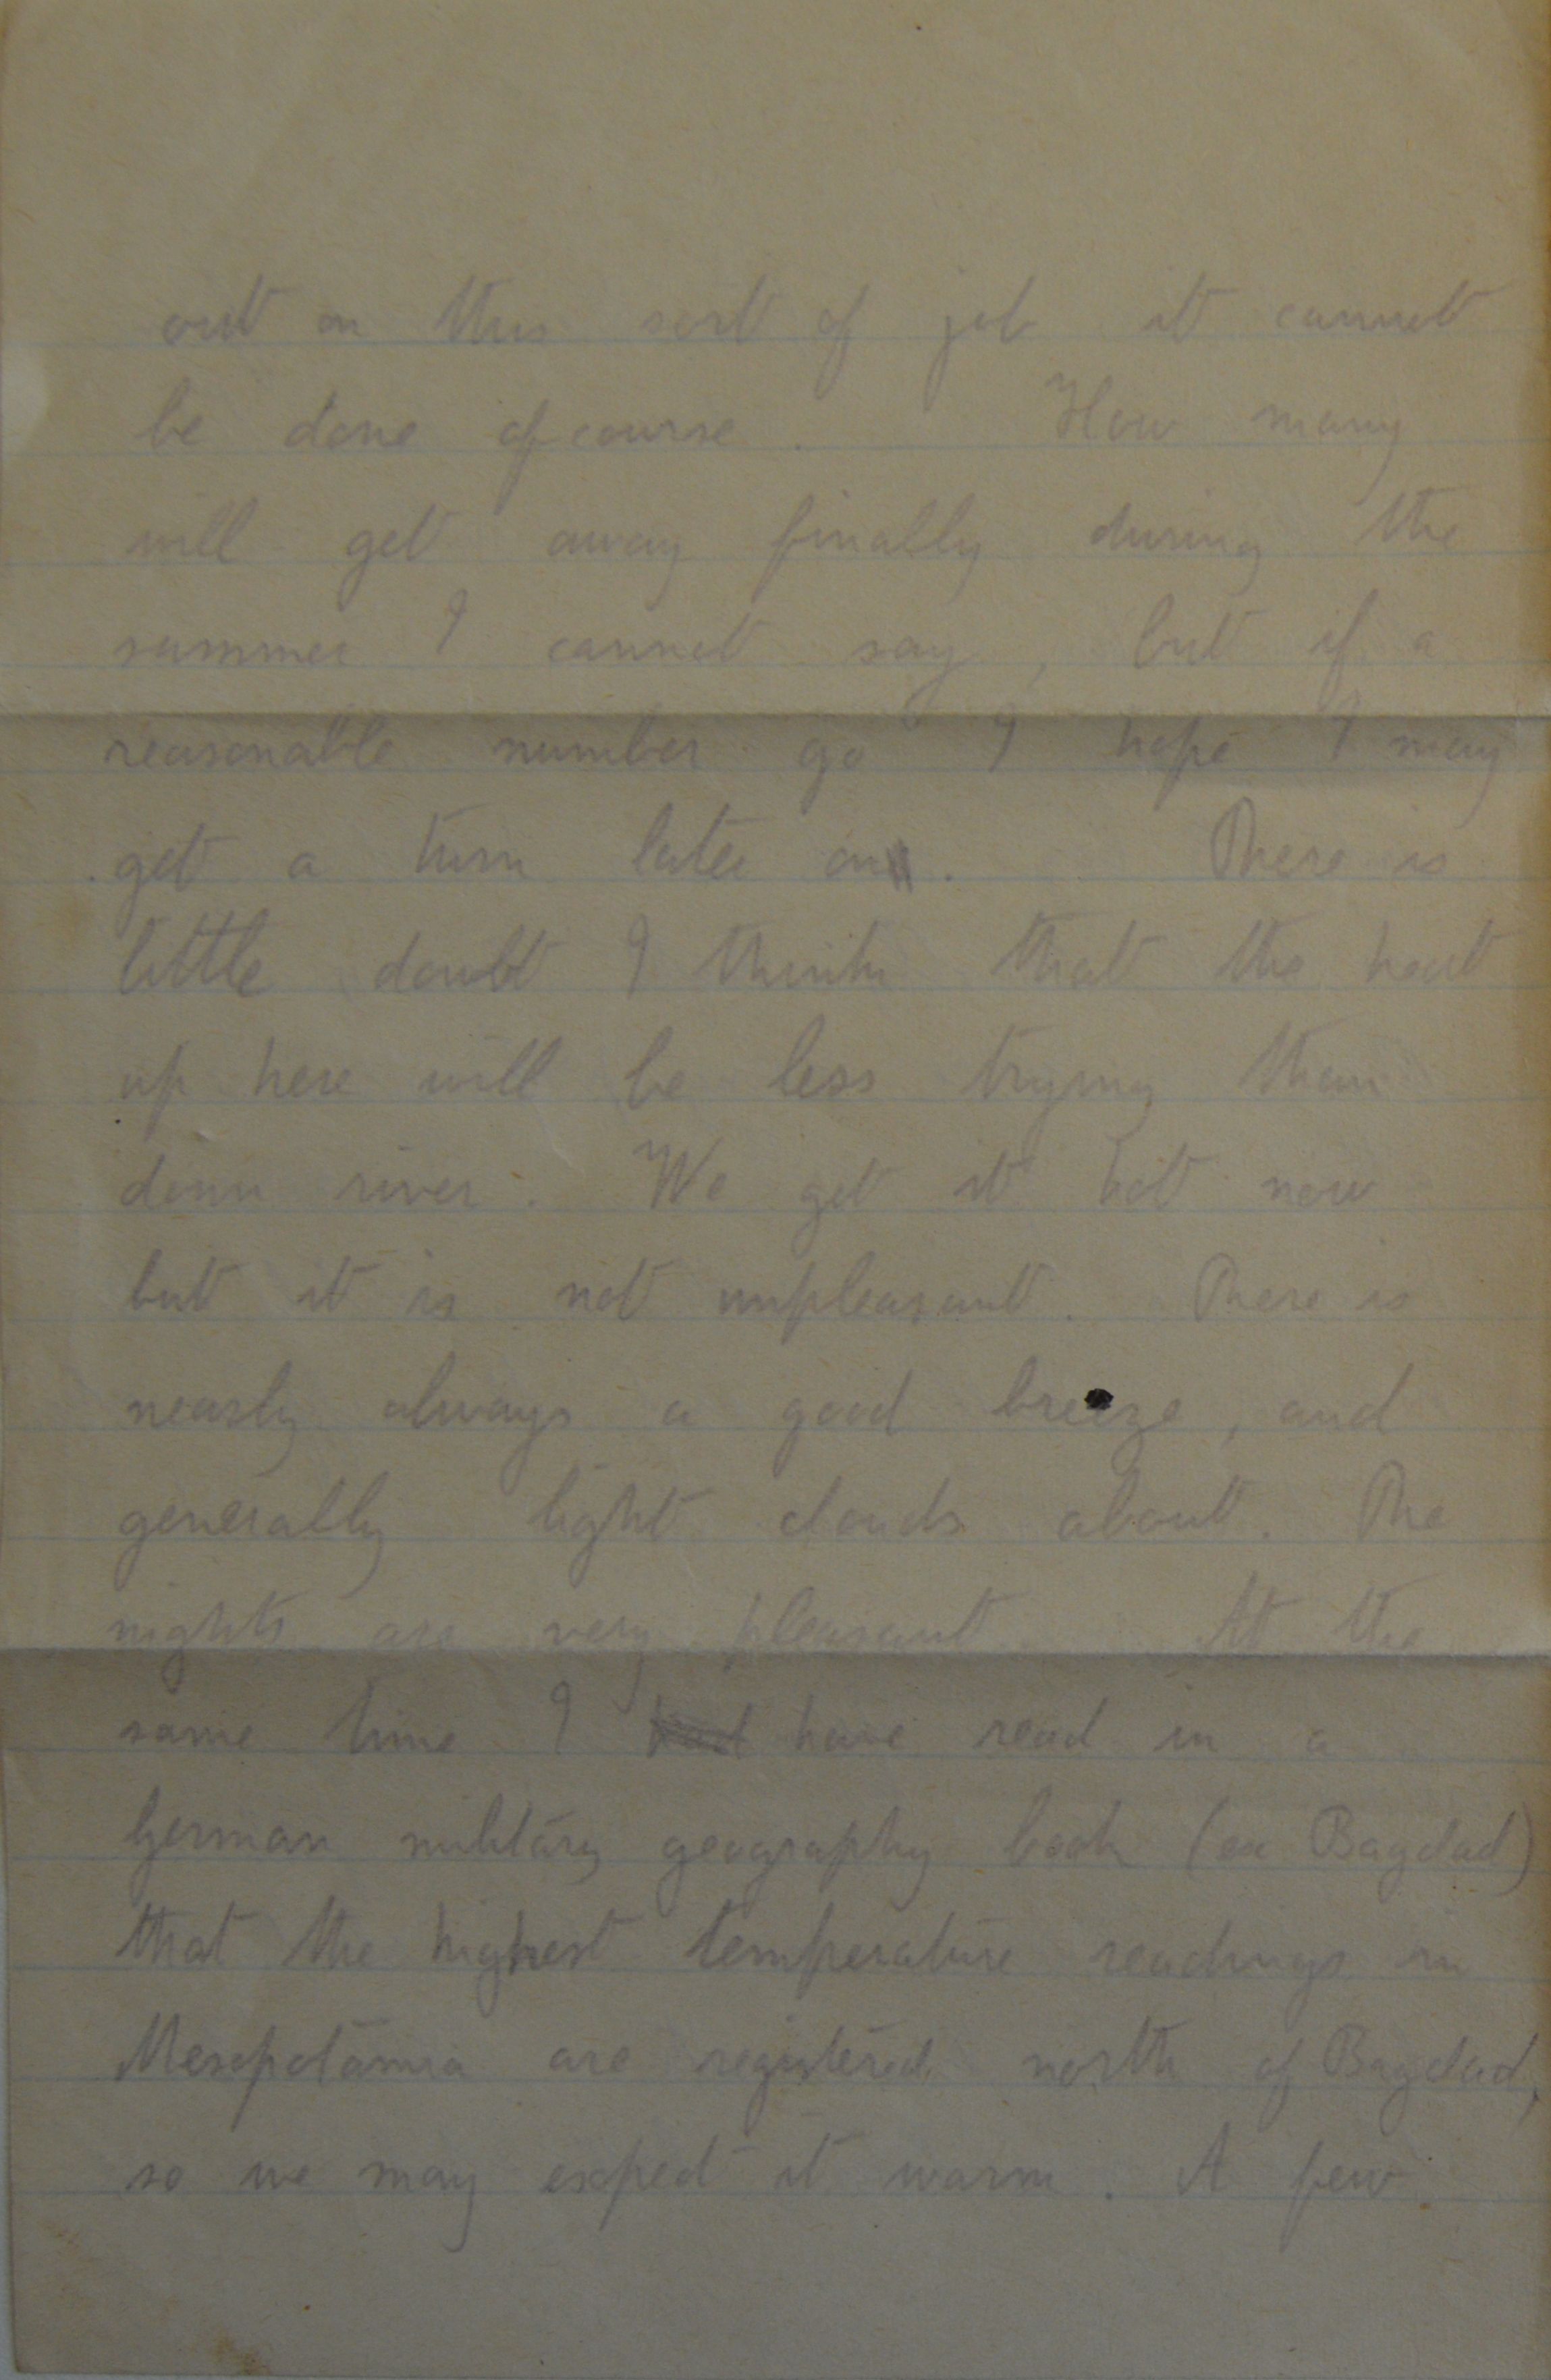 out on this sort of job it cannot
be done ofcourse. How many
will get away finally during the
summer I cannot say, but if a
reasonable number go I hope I may
get a turn later on. There is
little doubt I think that the heat
up here will be less trying than
down river. We get it hot now
but it is not unpleasant. There is
nearly always a good breeze, and
generally light clouds about. The
nights are very pleasant. At the
same time I had have read in a
German military geography book (ex Bagdad)
that the highest temperature readings in
Mesopotamia are registered north of Bagdad,
so we may expect it warm. A few